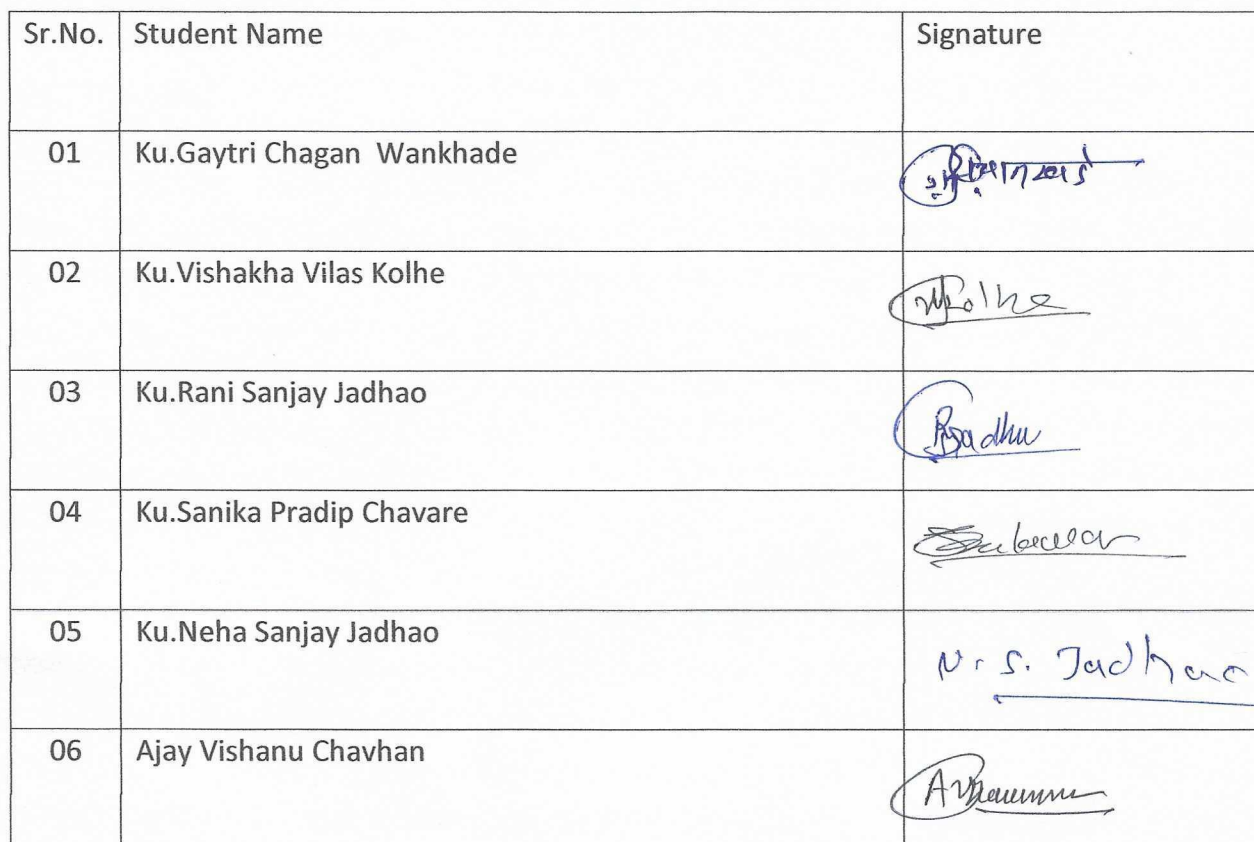 Sr.No. Student Name Signature
01 Ku.Gaytri Chagan Wankhade
02 Ku.Vishakha Vilas Kolhe Kolhe
03 Ku.Rani Sanjay Jadhao
04 Ku.Sanika Pradip Chavare
05 Ku.Neha Sanjay Jadhao N. S. Jadhao
06 Ajay Vishanu Chavhan